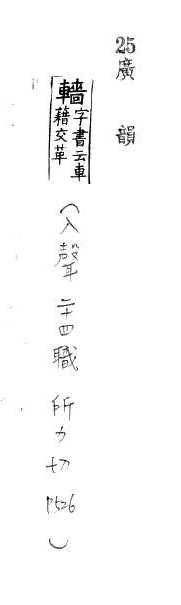 25 廣韻
轖 字書云車藉交革
(入聲二十四職 所力切 P526)